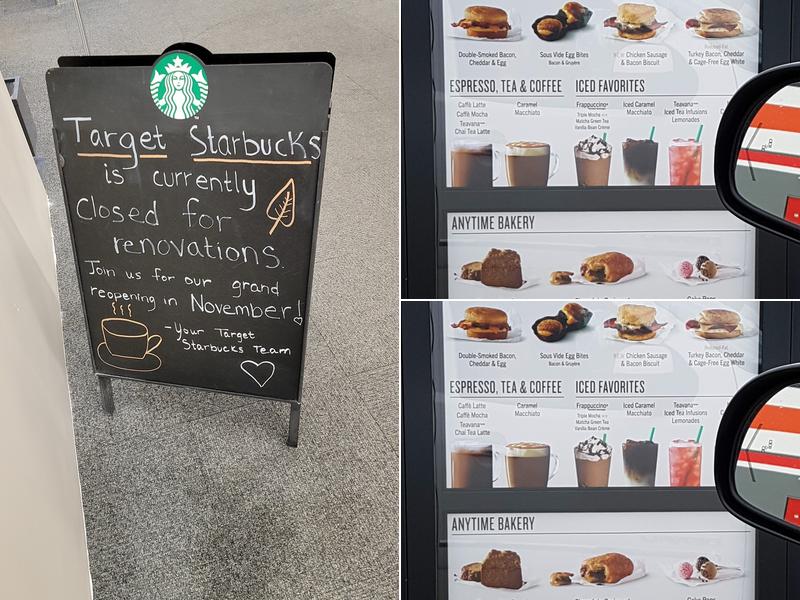 Target Starbucks
is currently
Closed for
renovations.
Join us for our grand
reopening in November!
-Your Target
Starbucks Team
Double-Smoked Bacon,
Cheddar & Egg
Sous Vide Egg Bites
Bacon & Gruyère
Chicken Sausage
& Bacon Biscuit
Reduced-Fat
Turkey Bacon, Cheddar
& Cage-Free Egg White
ESPRESSO, TEA & COFFEE
ICED FAVORITES
Caffè Latte
Caffè Mocha
Teavana
Chai Tea Latte
Caramel
Macchiato
Frappuccino
Triple Mocha
Matcha Green Tea
Vanilla Bean Crème
Iced Caramel
Macchiato
Teavana
Iced Tea Infusions
Lemonades
ANYTIME BAKERY
Cake Pops
Double-Smoked Bacon,
Cheddar & Egg
Sous Vide Egg Bites
Bacon & Gruyère
Chicken Sausage
& Bacon Biscuit
Reduced-Fat
Turkey Bacon, Cheddar
& Cage-Free Egg White
ESPRESSO, TEA & COFFEE
ICED FAVORITES
Caffè Latte
Caffè Mocha
Teavana
Chai Tea Latte
Caramel
Macchiato
Frappuccino
Triple Mocha
Matcha Green Tea
Vanilla Bean Crème
Iced Caramel
Macchiato
Teavana
Iced Tea Infusions
Lemonades
ANYTIME BAKERY
Cake Pops